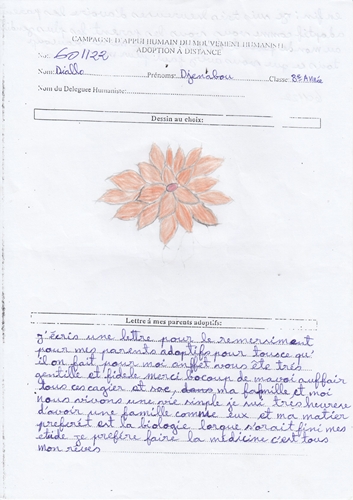 CAMPAGNE D'APPUI HUMAIN DU MOUVEMENT HUMANISTE
ADOPTION À DISTANCE
No: 601/22
Nom: Diallo Prénoms: Djenabou Classe: 8e Année
Nom du Delegue Humaniste:
Dessin au choix:
Lettre à mes parents adoptifs:
J'écris une lettre pour le remersiment
pour mes parents adoptifs pour tousce qu'
il on fait pour moi anffet vous ête très
gentille et fidele merci bocoup de mavoi auffair
tous ces cagier et sac, dans ma famille et moi
nous vivons une vie simple je sui très heureuse
d'avoir une famille comme eux et ma matier
preferèt est la biologie, lorque s'orait fini mes
etude je prefère faire la médecine c'est tous
mon rèves